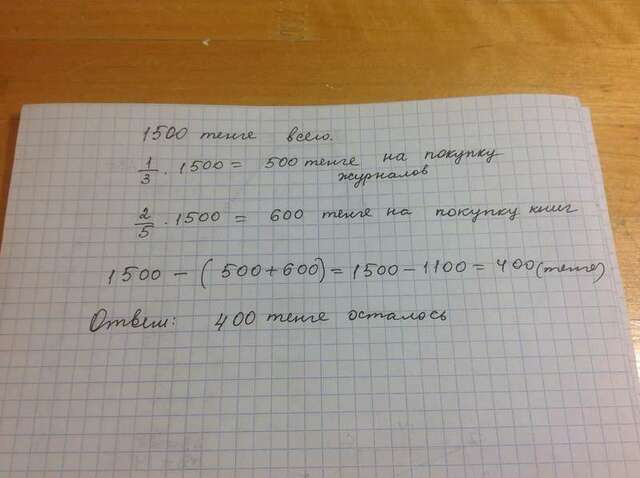 1500 тенге всего.
1/3 · 1500 = 500 тенге на покупку
журналов
2/5 · 1500 = 600 тенге на покупку книг
1500 - (500+600) = 1500 - 1100 = 400 (тенге)
Ответ: 400 тенге осталось